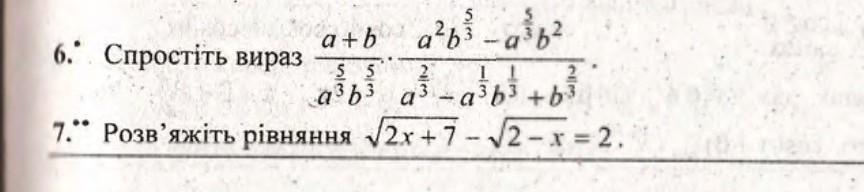 6.• Спростіть вираз \frac{a+b}{a^{\frac{5}{3}}b^{\frac{5}{3}}} \cdot \frac{a^2b^{\frac{5}{3}} - a^{\frac{5}{3}}b^2}{a^{\frac{2}{3}} - a^{\frac{1}{3}}b^{\frac{1}{3}} + b^{\frac{2}{3}}}.
7.•• Розв'яжіть рівняння \sqrt{2x+7} - \sqrt{2-x} = 2.